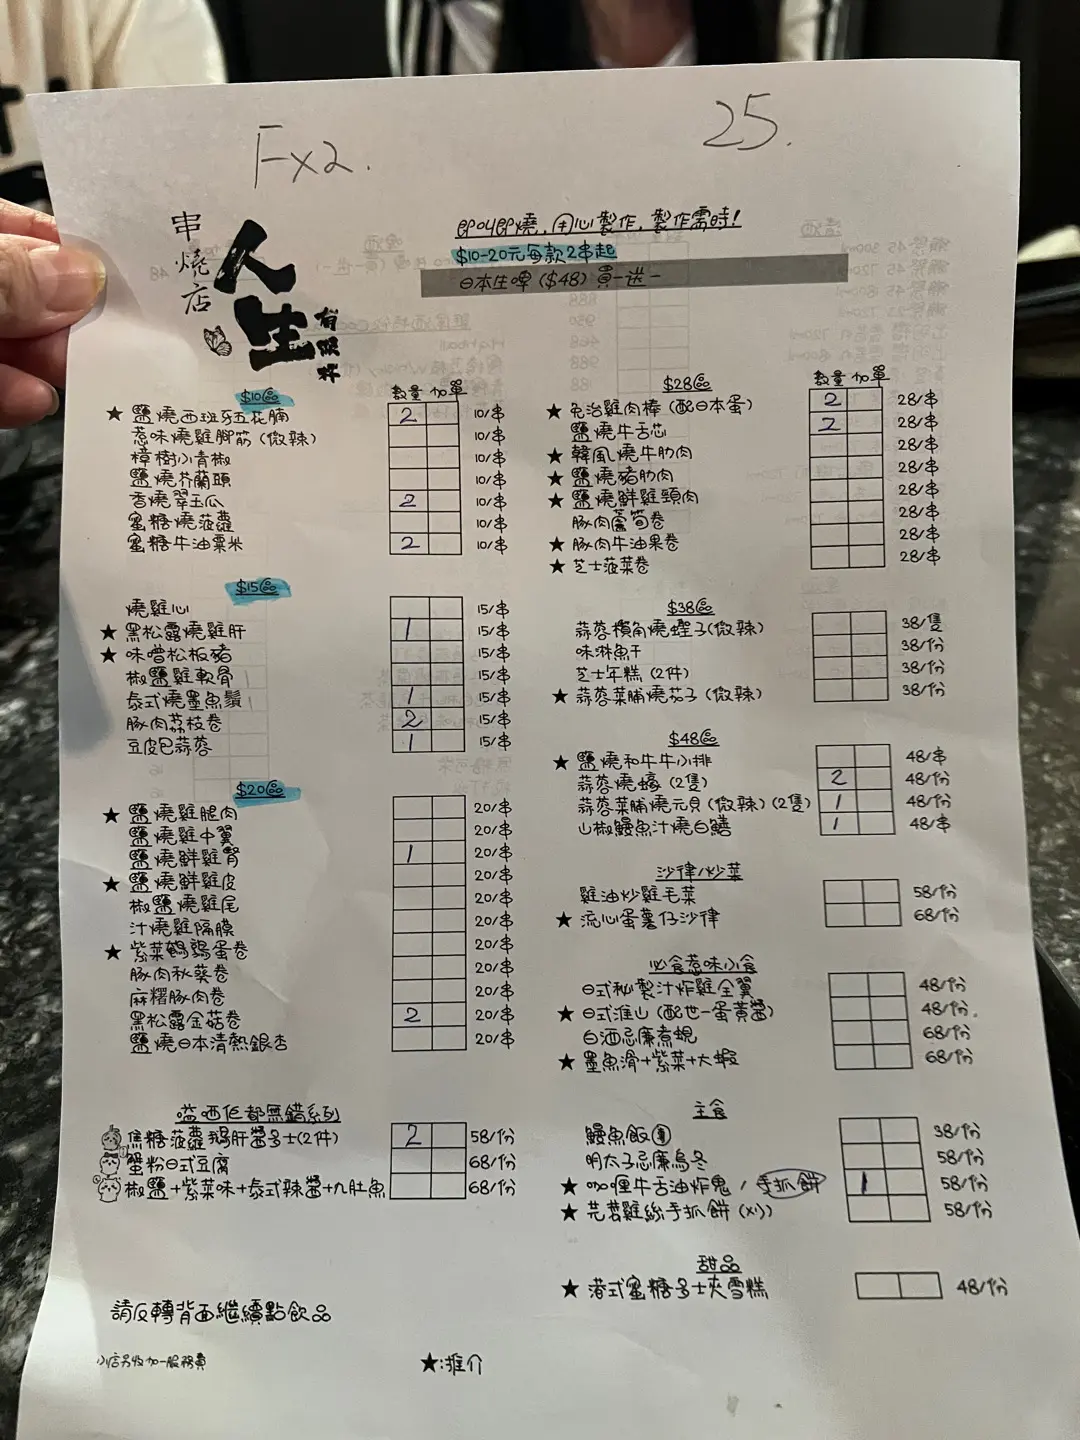 Fx2.
25.
串燒店
人生
有限杯
即叫即燒,用心製作,製作需時!
$10-20元每款2串起
日本生啤 ($48) 買一送一
$10區 數量 加單
★ 鹽燒西班牙五花腩 2 10/串
惹味燒雞腳筋 (微辣) 10/串
樟樹小青椒 10/串
鹽燒芥蘭頭 10/串
香燒翠玉瓜 2 10/串
蜜糖燒菠蘿 10/串
蜜糖牛油粟米 2 10/串
$15區
燒雞心 15/串
★ 黑松露燒雞肝 1 15/串
★ 味噌松板豬 15/串
椒鹽雞軟骨 15/串
泰式燒墨魚鬚 1 15/串
豚肉荔枝卷 2 15/串
豆皮巴蒜蓉 1 15/串
$20區
★ 鹽燒雞腿肉 20/串
鹽燒雞中翼 20/串
鹽燒鮮雞腎 1 20/串
★ 鹽燒鮮雞皮 20/串
椒鹽燒雞尾 20/串
汁燒雞隔膜 20/串
★ 紫菜鵪鶉蛋卷 20/串
豚肉秋葵卷 20/串
麻糬豚肉卷 20/串
黑松露金菇卷 2 20/串
鹽燒日本清熱銀杏 20/串
嗌哂佢都無錯系列
焦糖菠蘿鵝肝醬多士(2件) 2 58/份
蟹粉日式豆腐 68/份
椒鹽+紫菜味+泰式辣醬+九肚魚 68/份
請反轉背面繼續點飲品
小店另收加一服務費
★:推介
$28區 數量 加單
★ 免治雞肉棒 (配日本蛋) 2 28/串
鹽燒牛舌芯 2 28/串
★ 韓風燒牛肋肉 28/串
★ 鹽燒豬肋肉 28/串
★ 鹽燒鮮雞頸肉 28/串
豚肉蘆筍卷 28/串
★ 豚肉牛油果卷 28/串
★ 芝士菠菜卷 28/串
$38區
蒜蓉欖角燒蟶子(微辣) 38/隻
味淋魚干 38/份
芝士年糕 (2件) 38/份
★ 蒜蓉菜脯燒茄子 (微辣) 38/份
$48區
★ 鹽燒和牛牛小排 48/串
蒜蓉燒蠔 (2隻) 2 48/份
蒜蓉菜脯燒元貝 (微辣) (2隻) 1 48/份
山椒鰻魚汁燒白鱔 1 48/串
沙律/炒菜
雞油炒雞毛菜 58/份
★ 流心蛋薯仔沙律 68/份
必食惹味小食
日式秘製汁炸雞全翼 48/份
★ 日式淮山 (配世一蛋黃醬) 48/份.
白酒忌廉煮蜆 68/份
★ 墨魚滑+紫菜+大蝦 68/份
主食
鰻魚飯 38/份
明太子忌廉烏冬 58/份
★ 咖喱牛舌油炸鬼 / 手抓餅 1 58/份
★ 芫茜雞絲手抓餅 (X小) 58/份
甜品
★ 港式蜜糖多士夾雪糕 48/份